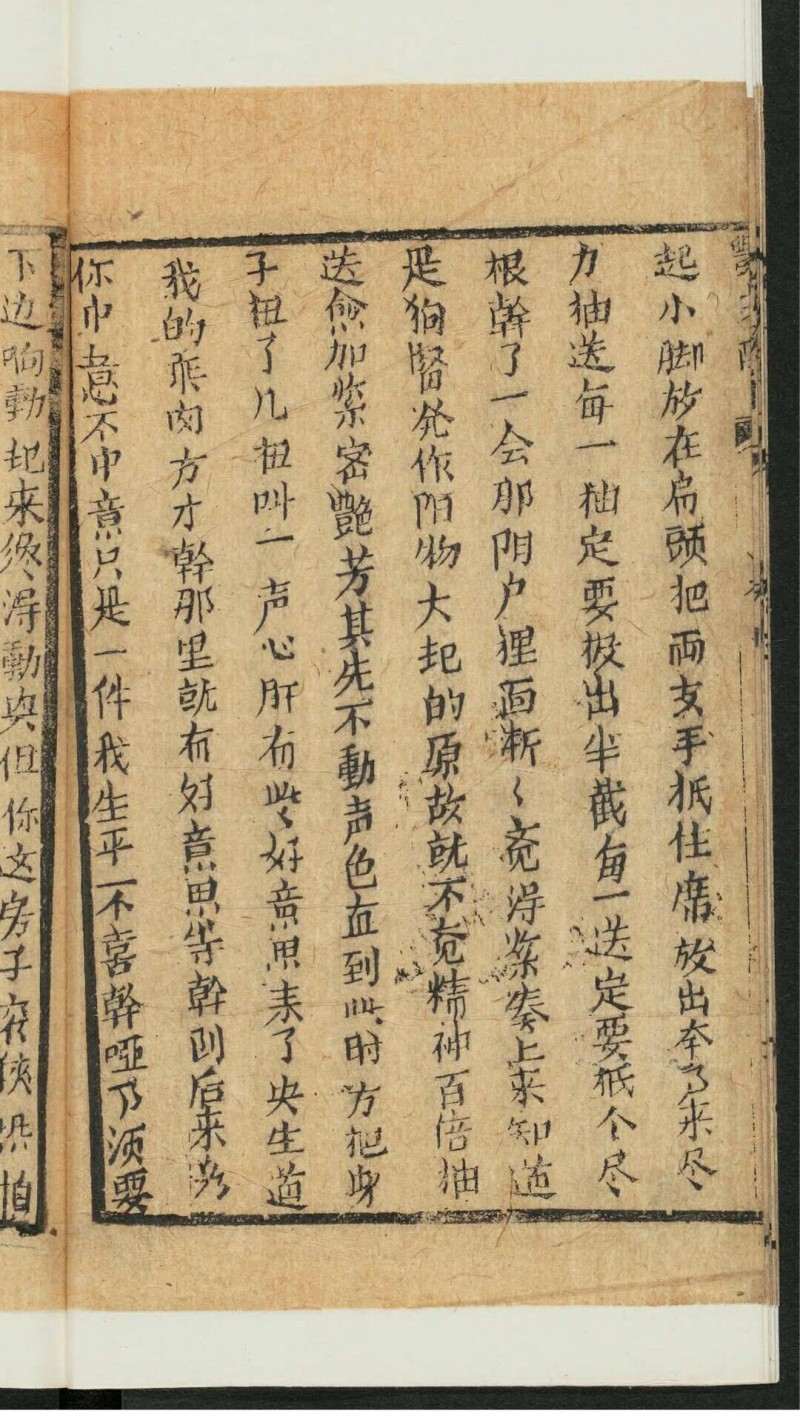 起小脚放在肩頭把両支手抵住席放出本事来尽
力抽送每一抽定要扳出半截每一送定要抵个尽
根幹了一会那阴户狸面渐〻竟得紧凑上来知道
是狗肾発作阳物大起的原故就不竟精神百倍抽
送愈加紧密艶芳其先不動声色直到此时方把身
子扭了几扭叫一声心肝有些好意思来了央生道
我的乖肉方才幹那里就有好意思等幹到后来
你中意不中意只是一件我生平不喜幹啞乃须要
下边响動起来終得動兴但你这房子窄狭恐怕